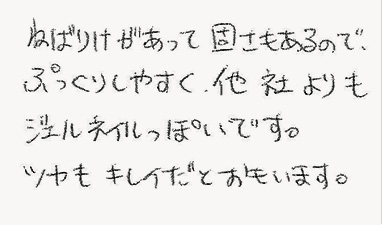 ねばりけがあって固さもあるので、
ぷっくりしやすく、他社よりも
ジェルネイルっぽいです。
ツヤもキレイだとおもいます。